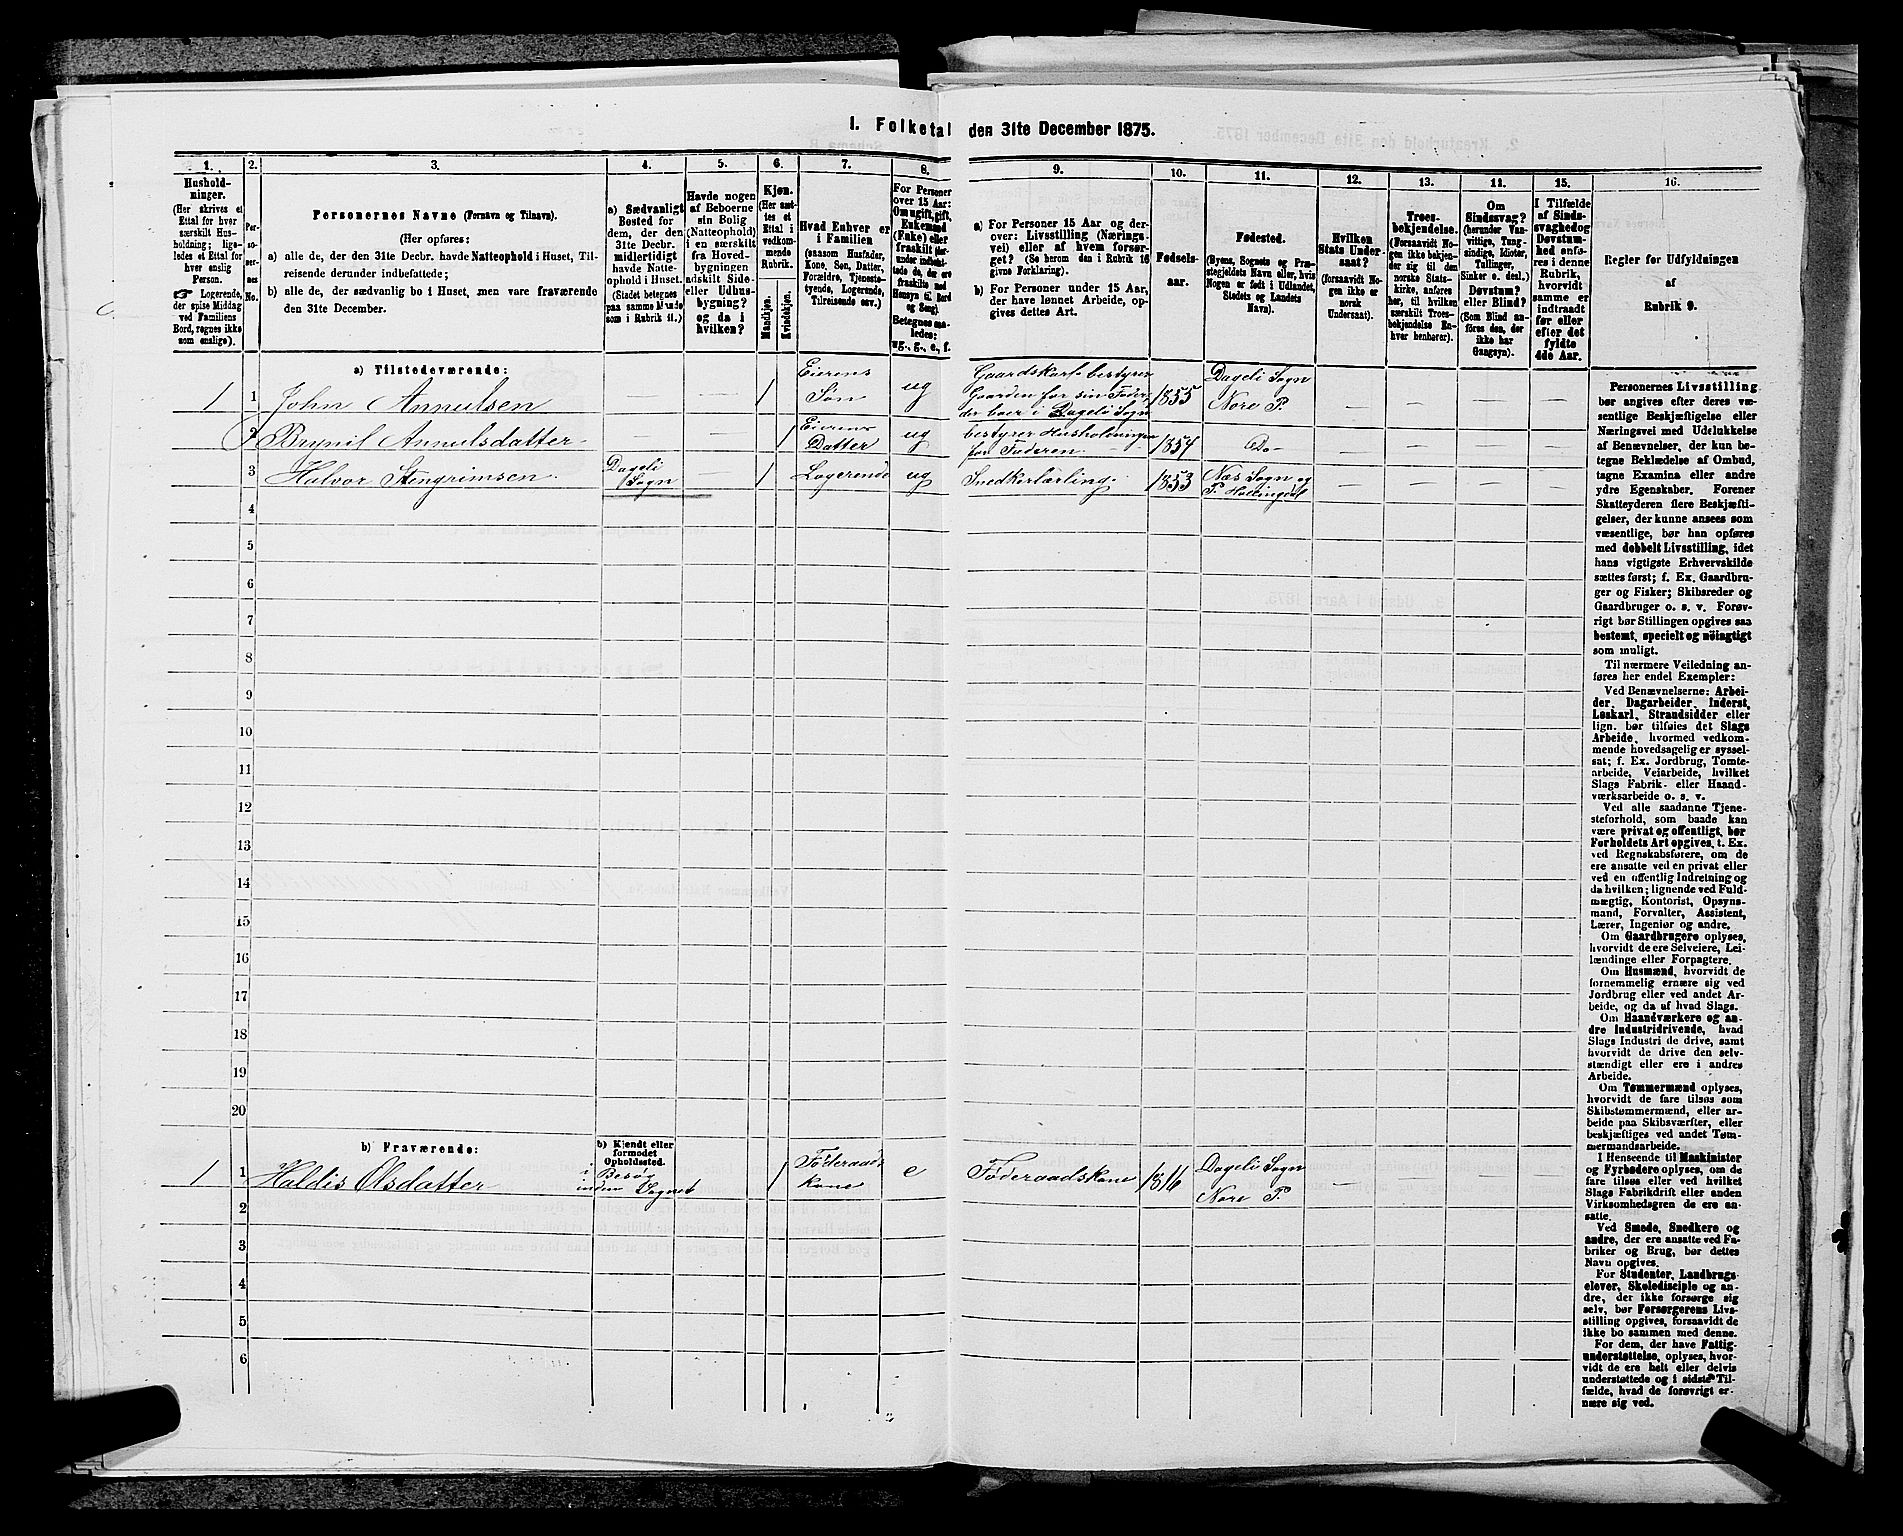 1. Folketal den 31te December 1875.
1.
2.
3.
4.
5.
6.
7.
8.
9.
10.
11.
12.
13.
14.
15.
16.
Hushold-
ninger.
(Her skrives et
Ettal for hver
særskilt Hus-
holdning; lige-
ledes et Ettal for
hver enslig
Person.
Logerende,
der spise Middag
ved Familiens
Bord, regnes ikke
som enslige).
Per-
so-
ner-
nes
No.
Personernes Navne (Fornavn og Tilnavn).
(Her opføres:
a) alle de, der den 31te Decbr. havde Natteophold i Huset, Til-
reisende derunder indbefattede;
b) alle de, der sædvanlig bo i Huset, men vare fraværende
den 31te December.
a) Sædvanligt
Bosted for
dem, der den
31te Decbr.
midlertidigt
havde Natte-
ophold i Huset.
(Stedet betegnes
paa samme Maade
som i Rubrik 11.)
Havde nogen
af Beboerne
sin Bolig
(Natteophold)
i en særskilt
fra Hoved-
bygningen
adskilt Side-
eller Udhus-
bygning?
og da i
hvilken?
Kjøn.
(Her sæt-
tes et
Ettal i
vedkom-
mende
Rubrik.
Mandkjøn.
Kvindekjøn.
Hvad Enhver er
i Familien
(saasom Husfader,
Kone, Søn, Datter,
Forældre, Tjeneste-
tyende, Logerende,
Tilreisende osv.)
For Personer
over 15 Aar:
Om ugift, gift,
Enkemand
(Enke) eller
fraskilt der-
under indbefat-
tede de, der ere
fraskilte med
Hensyn til Bord
og Seng)
Betegnes saa-
ledes:
ug., g., e., f.
a) For Personer 15 Aar og der-
over: Livsstilling (Nærings-
vei) eller af hvem forsør-
get? (Se herom den i Rubrik 16
givne Forklaring).
b) For Personer under 15 Aar,
der have lønnet Arbeide, op-
gives dettes Art.
Fødsels-
aar.
Fødested.
(Byens, Sognets og Præ-
stegjeldets Navn eller, hvis
Nogen er født i Udlandet,
Stedets og Landets
Navn).
Hvilken
Stats Under-
saat?
(forsaavidt No-
gen ikke er
norsk
Undersaat).
Troes-
bekjendelse.
(Forsaavidt No-
gen ikke bekjen-
der sig til den
norske Stats-
kirke, anføres
her, til hvilken
særskilt Troes-
bekjendelse En-
hver henhører).
Om
Sindssvag?
(herunder Van-
vittige, Tung-
sindige, Idioter,
Tullinger,
Sinker o. desl.)
Døvstum?
eller Blind?
(Som Blind an-
føres den, der
ikke har
Gangsyn).
I Tilfælde
af Sinds-
svaghed og
Døvstum-
hed anfø-
res i denne
Rubrik,
hvorvidt
samme er
indtraadt
før eller
efter det
fyldte
4de Aar.
Regler for Udfyldningen
af
Rubrik 9.
a) Tilstedeværende:
1 1 John Annulsen — — 1 Eierens Søn ug Gaardskarl bestyrer Gaarden for sin Fader der boer i Dageli Sogn 1855 Dageli Sogn Nore P. — — — —
2 Brynil Annulsdatter — — 1 Eierens Datter ug bestyrer Husholdningen for Faderen 1854 Do — — — —
3 Halvor Stengrimsen Dageli Sogn 1 Logerende ug Snedkerlærling. 1853 Næs Sogn og P. Hallingdal — — — —
4
5
6
7
8
9
10
11
12
13
14
15
16
17
18
19
20
b) Fraværende:
b) Kjendt eller
formodet
Opholdssted.
1 1 Haldis Olsdatter i Besøg inden Sognet 1 Føderaads kone e Føderaadskone 1816 Dageli Sogn Nore P. — — — —
2
3
4
5
6
Personernes Livsstilling
bør angives efter deres væ-
sentlige Beskjæftigelse eller
Næringsvei med Udelukkelse
af Benævnelser, der kun be-
tegne Beklædelse af Ombud,
tagne Examina eller andre
ydre Egenskaber. Forener
Skatteyderen flere Beskjæfti-
gelser, der kunne ansees som
væsentlige, bør han opføres
med dobbelt Livsstilling, idet
hans vigtigste Erhvervskilde
sættes først; f. Ex. Gaardbru-
ger og Fisker; Skibsreder og
Gaardbruger o. s. v. Forøv-
rigt bør Stillingen opgives saa
bestemt, specielt og nøiagtigt
som muligt.
Til nærmere Veiledning an-
føres her endel Exempler:
Ved Benævnelserne: Arbei-
der, Dagarbeider, Inderst,
Løskarl, Strandsidder eller
lign. bør tilføies det Slags
Arbeide, hvormed vedkom-
mende hovedsagelig er syssel-
sat; f. Ex. Jordbrug, Tomte-
arbeide, Veiarbeide, hvilket
Slags Fabrik- eller Haand-
værksarbeide o. s. v.
Ved alle saadanne Tjene-
steforhold, som baade kan
være privat og offentligt, bør
Forholdets Art opgives, t. Ex.
ved Regnskabsførere, om de
ere ansatte ved en privat eller
ved en offentlig Indretning og
da hvilken; lignende ved Fuld-
mægtig, Kontorist, Opsyns-
mand, Forvalter, Assistent,
Lærer, Ingeniør og andre.
Om Gaardbrugere oplyses,
hvorvidt de ere Selveiere, Lei-
lændinge eller Forpagtere.
Om Husmænd, hvorvidt de
fornemmelig ernære sig ved
Jordbrug eller ved andet Ar-
beide, og da af hvad Slags.
Om Haandværkere og an-
dre Industridrivende, hvad
Slags Industri de drive, samt
hvorvidt de drive den selv-
stændigt eller ere i andres
Arbeide.
Om Tømmermænd oplyses,
hvorvidt de fare tilsøs som
Skibstømmermænd, eller ar-
beide paa Skibsværfter, eller
beskjæftiges ved andet Tøm-
mermandsarbeide.
I Henseende til Maskinister
og Fyrbødere oplyses, om de
fare tilsøs eller ved hvilket
Slags Fabrikdrift eller anden
Virksomhedsgren de ere an-
satte.
Ved Smede, Snedkere og
andre, der ere ansatte ved Fa-
briker og Brug, bør dettes
Navn opgives.
For Studenter, Landbrugs-
elever, Skoledisciple og an-
dre, der ikke forsørge sig
selv, bør Forsørgerens Livs-
stilling opgives, forsaavidt de
ikke bo sammen med denne.
For dem, der have Fattig-
understøttelse, oplyses, hvor-
vidt de ere helt eller delvis
understøttede og i sidste Til-
fælde, hvad de forøvrigt er-
nære sig ved.